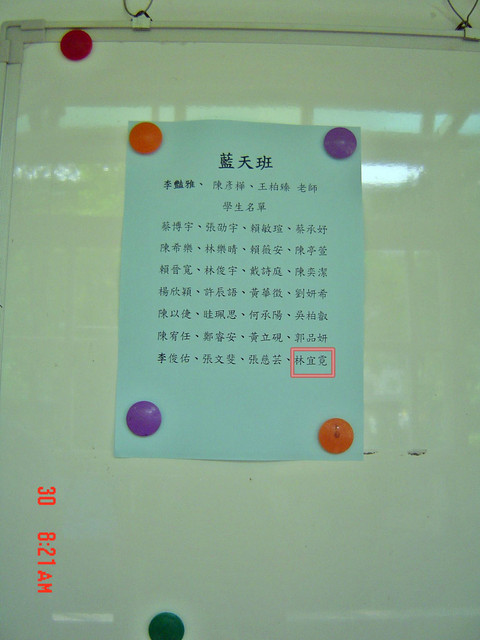 藍天班
李豔雅、陳彥樺、王柏臻 老師
學生名單
蔡博宇、張劭宇、賴敏瑄、蔡承妤
陳希樂、林樂晴、賴薇安、陳亭萱
賴晉寬、林俊宇、戴詩庭、陳奕潔
楊欣穎、許辰語、黃華微、劉妍希
陳以倢、眭珮思、何承陽、吳柏叡
陳宥任、鄭睿安、黃立硯、郭品妍
李俊佑、張文斐、張慈芸、林宜霓
30 8:21AM